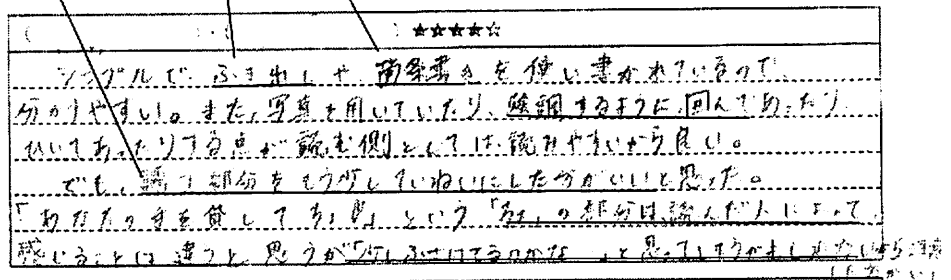 ★★★★☆
シンプルで、ふき出しや箇条書きを使い書かれているので、
分かりやすい。また、写真を用いていたり、強調するように囲んであったり
ひいてあったりする点が読む側としては読みやすいから良い。
でも、誘う部分をもう少していねいにした方がいいと思った。
「あなたの手を貸してちょ」という「ちょ」の部分は読んだ人によって
感じることは違うと思うが「少しふざけてるのかな」と思ってしまうかもしれない